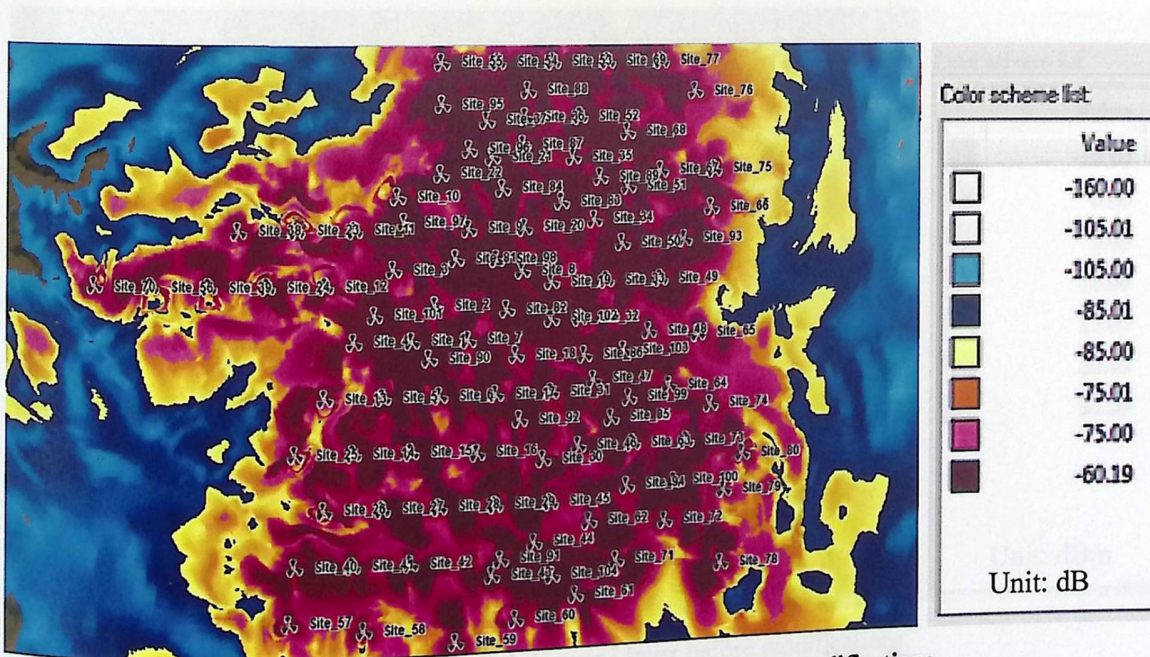 Site_55 Site_54 Site_53 Site_69 Site_77
Site_88 Site_76
Site_95
Site_37 Site_36 Site_52
Site_68
Site_96 Site_87
Site_21 Site_35
Site_22 Site_89 Site_67 Site_75
Site_84 Site_51
Site_10 Site_83 Site_66
Site_97 Site_9 Site_20 Site_34
Site_38 Site_23 Site_11 Site_50 Site_93
Site_81 Site_98
Site_3 Site_8 Site_19 Site_33 Site_49
Site_70 Site_56 Site_39 Site_24 Site_12
Site_2 Site_82
Site_101 Site_102 Site_32
Site_48 Site_65
Site_4 Site_1 Site_7
Site_90 Site_18 Site_86 Site_103
Site_47 Site_64
Site_13 Site_5 Site_6 Site_17 Site_31 Site_99 Site_74
Site_92 Site_85
Site_46 Site_63 Site_73
Site_25 Site_14 Site_15 Site_16 Site_30 Site_80
Site_94 Site_100
Site_79
Site_26 Site_27 Site_28 Site_29 Site_45
Site_62 Site_72
Site_44
Site_91 Site_71 Site_78
Site_40 Site_41 Site_42 Site_43 Site_104
Site_61
Site_60
Site_57 Site_58
Site_59
Color scheme list:
Value
-160.00
-105.01
-105.00
-85.01
-85.00
-75.01
-75.00
-60.19
Unit: dB